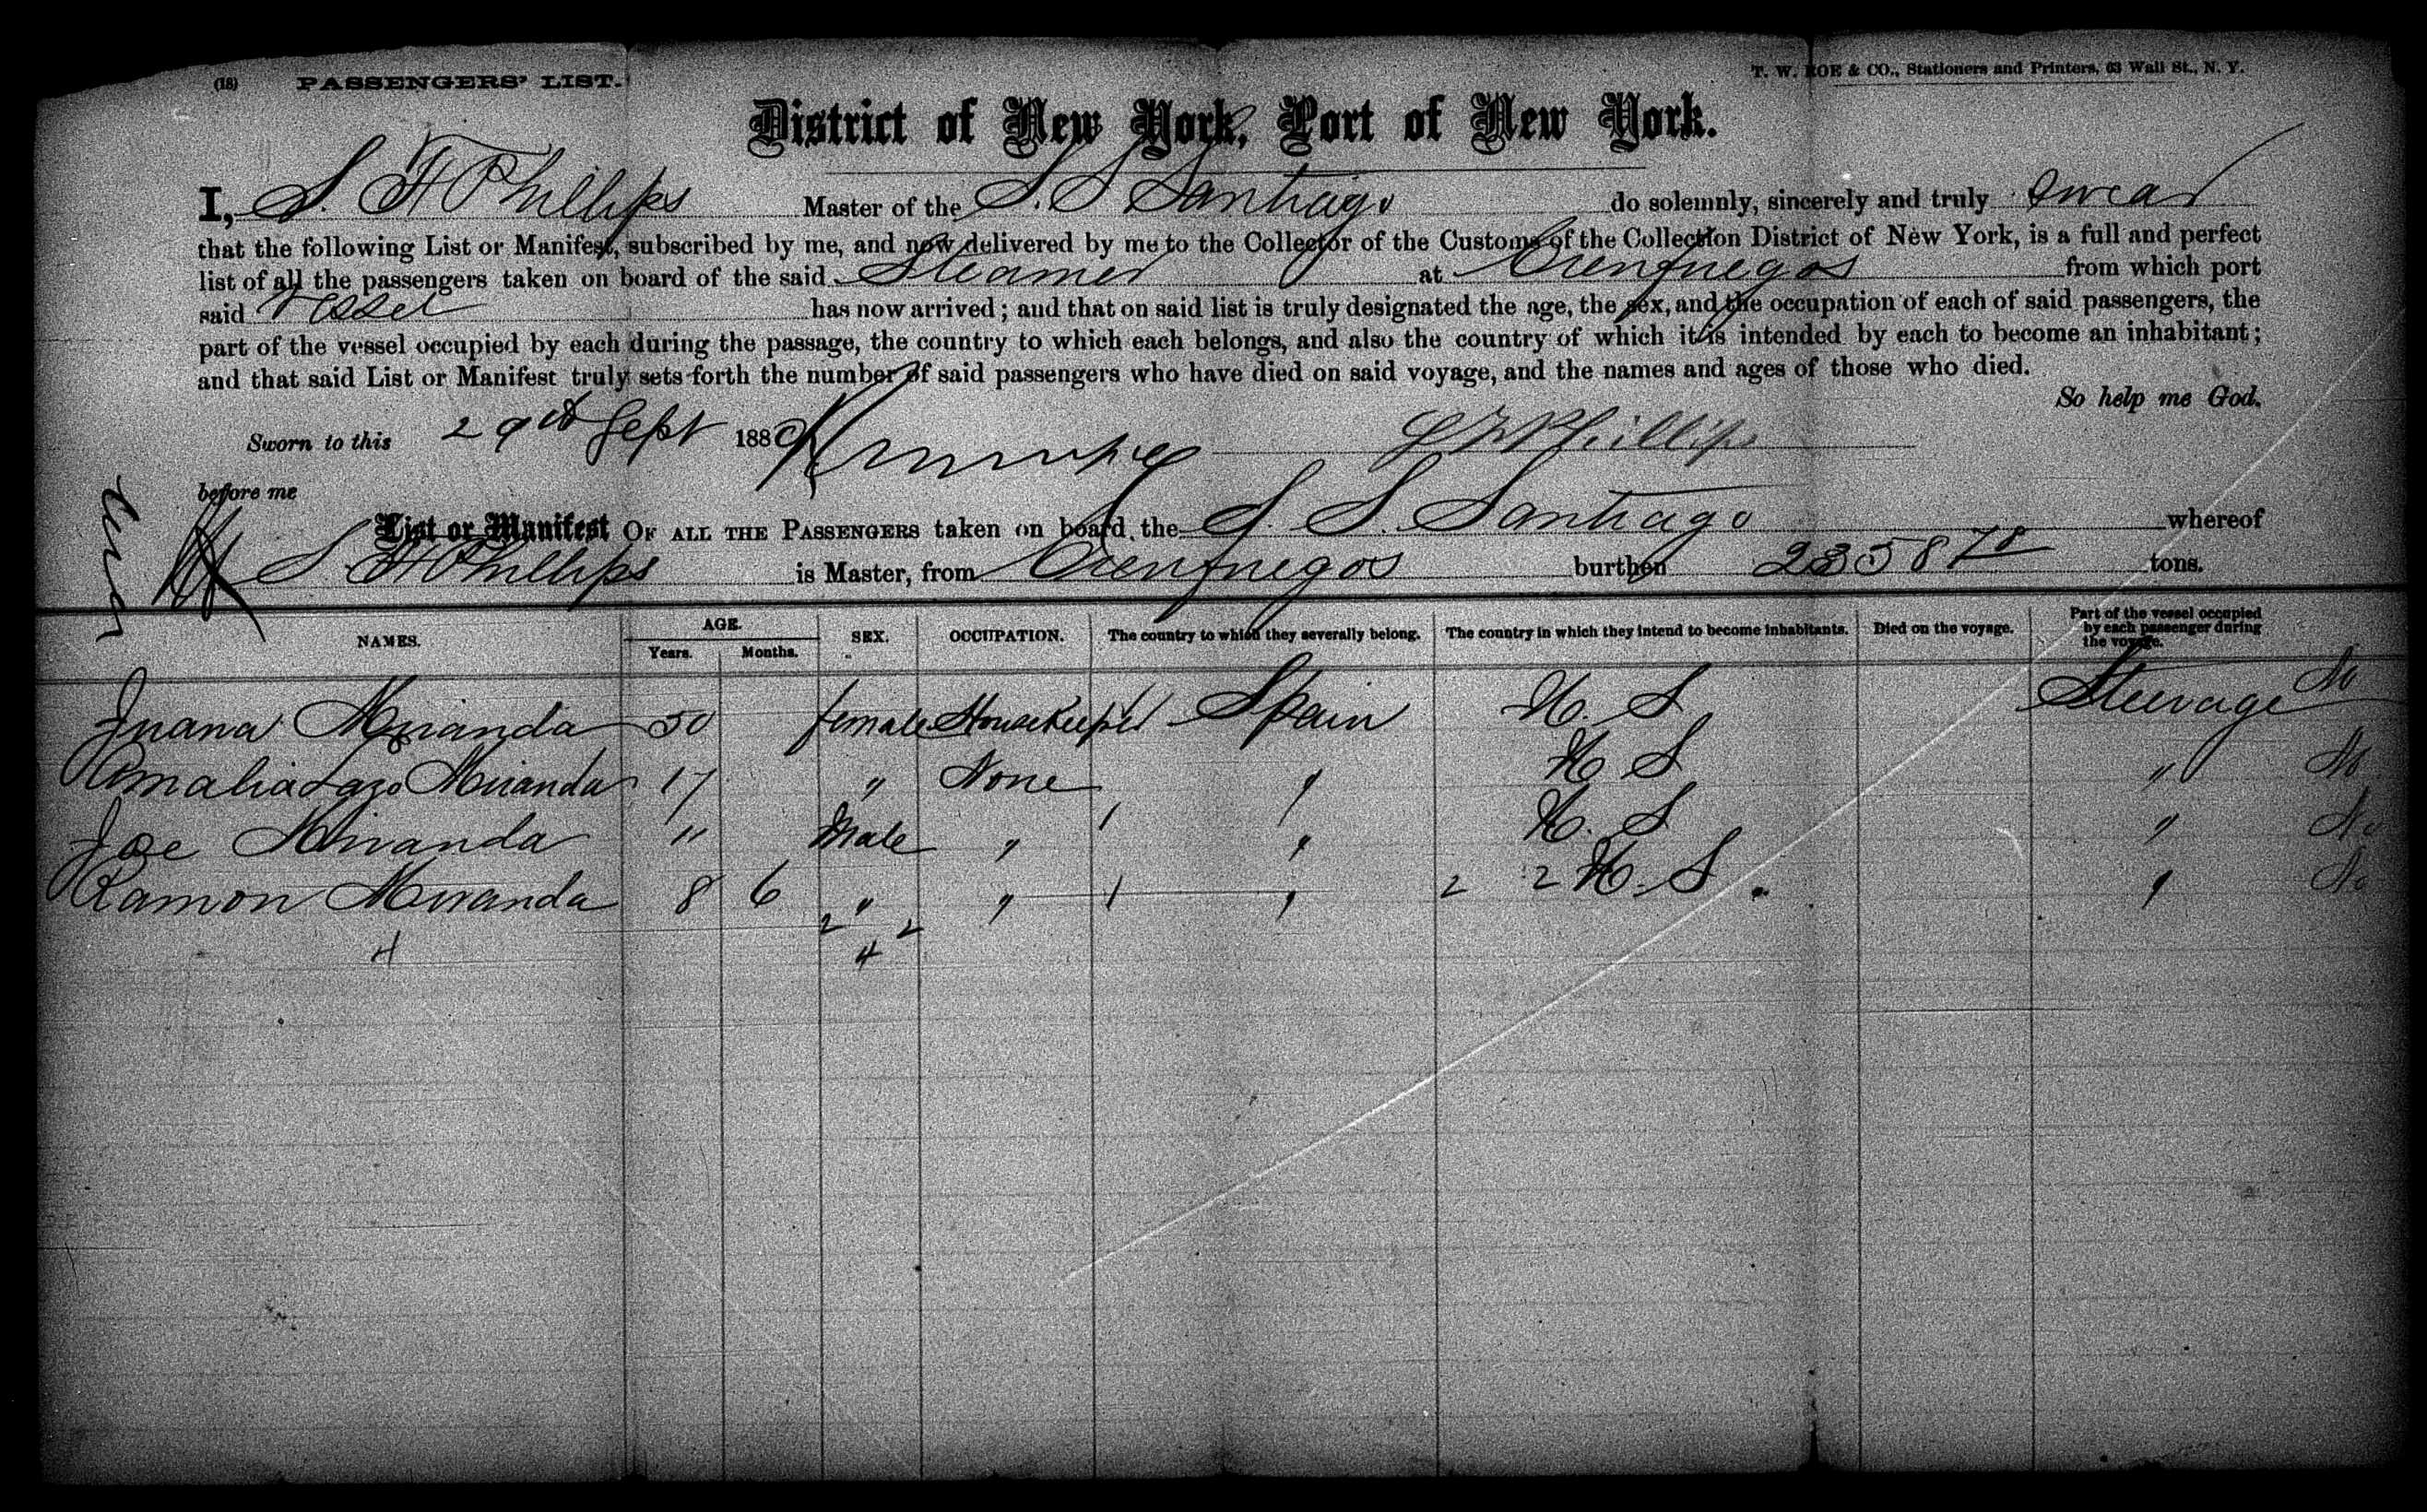 (18) PASSENGERS' LIST. T. W. ROE & CO., Stationers and Printers, 63 Wall St., N. Y.
District of New York, Port of New York.
I, S. F Phillips Master of the S. S Santiago do solemnly, sincerely and truly swear
that the following List or Manifest, subscribed by me, and now delivered by me to the Collector of the Customs of the Collection District of New York, is a full and perfect
list of all the passengers taken on board of the said Steamer at Cienfuegos from which port
said Vessel has now arrived; and that on said list is truly designated the age, the sex, and the occupation of each of said passengers, the
part of the vessel occupied by each during the passage, the country to which each belongs, and also the country of which it is intended by each to become an inhabitant;
and that said List or Manifest truly sets forth the number of said passengers who have died on said voyage, and the names and ages of those who died.
So help me God.
Sworn to this 29th Sept 188 Phillips
before me
List or Manifest OF ALL THE PASSENGERS taken on board the S. S. Santiago whereof
Phillips is Master, from Cienfuegos burthen 2358 78 tons.
NAMES. AGE. Years. Months. SEX. OCCUPATION. The country to which they severally belong. The country in which they intend to become inhabitants. Died on the voyage. Part of the vessel occupied by each passenger during the voyage.
Juana Miranda 50 female Housekeeper Spain U. S Steerage No
Amalia Lazo Miranda 17 " None " U S " No
Jose Miranda 11 Male " " U. S " No
Ramon Miranda 8 6 " " " 2 2 U. S. " No
2 2
4 4